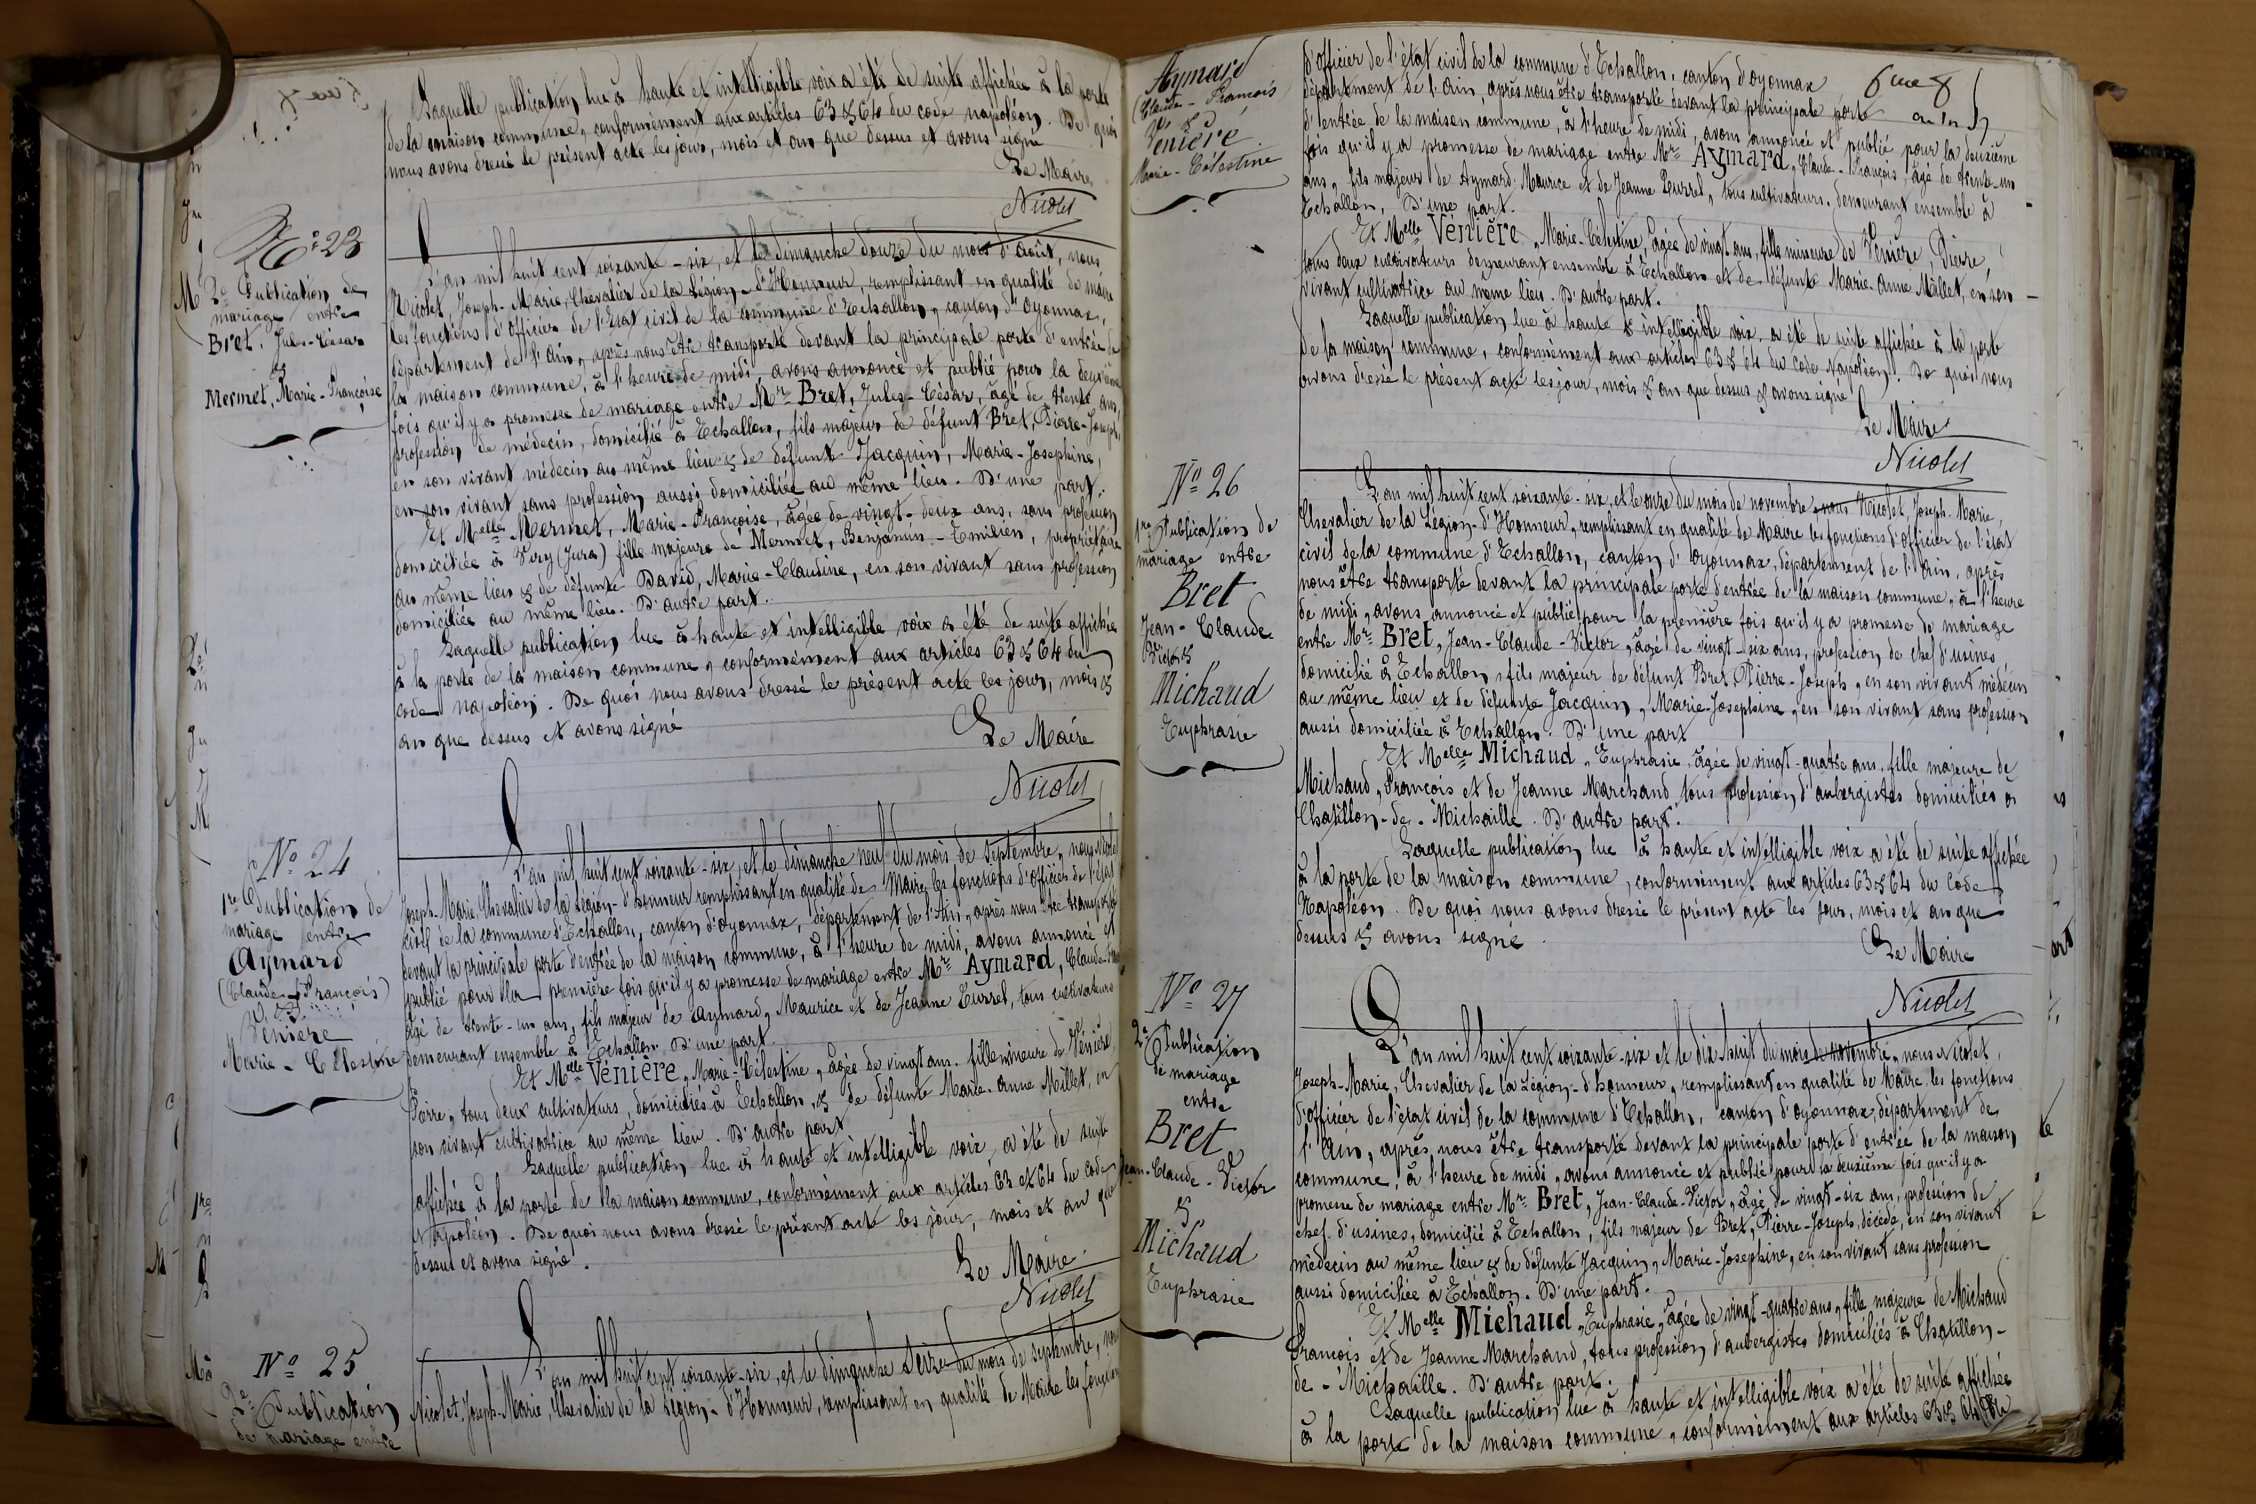 Laquelle publication lue à haute et intelligible voix a été de suite affichée à la porte
de la maison commune, conformément aux articles 63 & 64 du code napoléon. De quoi
nous avons dressé le présent acte les jour, mois et an que dessus et avons signé
Le Maire
Nicolet
N° 23
2e Publication de
mariage entre
Bret, Jules-César
&
Mermet, Marie-Françoise
L'an mil huit cent soixante-six, et le dimanche douze du mois d'août, nous
Nicolet, Joseph-Marie, Chevalier de la Légion-d'Honneur, remplissant en qualité de maire
les fonctions d'Officier de l'Etat civil de la commune d'Echallon, canton d'Oyonnax,
département de l'Ain, après nous être transporté devant la principale porte d'entrée de
la maison commune, à l'heure de midi, avons annoncé et publié pour la deuxième
fois qu'il y a promesse de mariage entre Mr Bret, Jules-César, âgé de trente ans,
profession de médecin, domicilié à Echallon, fils majeur de défunt Bret, Pierre-Joseph,
en son vivant médecin au même lieu & de défunte Jacquin, Marie-Josephine,
en son vivant sans profession aussi domiciliée au même lieu. D'une part.
Et Melle Mermet, Marie-Françoise, âgée de vingt-deux ans, sans profession
domiciliée à Viry (Jura) fille majeure de Mermet, Benjamin-Emilien, propriétaire
au même lieu & de défunte David, Marie-Claudine, en son vivant sans profession
domiciliée au même lieu. D'autre part.
Laquelle publication lue à haute et intelligible voix a été de suite affichée
à la porte de la maison commune, conformément aux articles 63 & 64 du
code napoléon. De quoi nous avons dressé le présent acte les jour, mois &
an que dessus et avons signé
Le Maire
Nicolet
N° 24
1re Publication de
mariage entre
Aymard
(Claude-François)
&
Venière
Marie-Célestine
L'an mil huit cent soixante-six, et le dimanche neuf du mois de septembre, nous Nicolet
Joseph-Marie, Chevalier de la Légion-d'honneur remplissant en qualité de Maire les fonctions d'Officier de l'état
civil de la commune d'Echallon, canton d'Oyonnax, département de l'Ain, après nous être transporté
devant la principale porte d'entrée de la maison commune, à l'heure de midi, avons annoncé et
publié pour la première fois qu'il y a promesse de mariage entre Mr Aymard, Claude-
âgé de trente-un ans, fils majeur de Aymard, Maurice et de Jeanne Turrel, tous cultivateurs
demeurant ensemble à Echallon. D'une part.
Et Melle Vénière, Marie-Célestine, âgée de vingt ans, fille mineure de Vénière,
Pierre, tous deux cultivateurs, domiciliés à Echallon, & de défunte Marie-Anne Millet, en
son vivant cultivatrice au même lieu. D'autre part.
Laquelle publication lue à haute et intelligible voix, a été de suite
affichée à la porte de la maison commune, conformément aux articles 63 et 64 du code
Napoléon. De quoi nous avons dressé le présent acte les jour, mois et an que
dessus et avons signé.
Le Maire
Nicolet
N° 25
2e Publication
de mariage entre
L'an mil huit cent soixante-six, et le dimanche seize du mois de septembre, nous
Nicolet, Joseph-Marie, Chevalier de la Légion-d'Honneur, remplissant en qualité de Maire les fonctions
Aymard
Claude-François
&
Venière
Marie-Célestine
d'Officier de l'état civil de la commune d'Echallon, canton d'Oyonnax
département de l'Ain, après nous être transporté devant la principale porte
d'entrée de la maison commune, à l'heure de midi, avons annoncé et publié pour la deuxième
fois qu'il y a promesse de mariage entre Mr Aymard, Claude-François, âgé de trente-un
ans, fils majeur de Aymard Maurice et de Jeanne Turrel, tous cultivateurs demeurant ensemble à
Echallon, D'une part.
Et Melle Vénière, Marie-Célestine, âgée de vingt ans, fille mineure de Venière, Pierre,
tous deux cultivateurs demeurant ensemble à Echallon et de défunte Marie-Anne Millet, en son
vivant cultivatrice au même lieu. D'autre part.
Laquelle publication lue à haute & intelligible voix, a été de suite affichée à la porte
de la maison commune, conformément aux articles 63 & 64 du Code Napoléon. De quoi nous
avons dressé le présent acte les jour, mois & an que dessus & avons signé
Le Maire
Nicolet
N° 26
1re Publication de
mariage entre
Bret
Jean-Claude
Victor &
Michaud
Euphrasie
L'an mil huit cent soixante-six, et le onze du mois de novembre, nous Nicolet, Joseph-Marie,
Chevalier de la Légion-d'Honneur, remplissant en qualité de Maire les fonctions d'Officier de l'état
civil de la commune d'Echallon, canton d'Oyonnax, département de l'Ain, après
nous être transporté devant la principale porte d'entrée de la maison commune, à l'heure
de midi, avons annoncé et publié pour la première fois qu'il y a promesse de mariage
entre Mr Bret, Jean-Claude-Victor, âgé de vingt-six ans, profession de chef d'usines
domicilié à Echallon, fils majeur de défunt Bret, Pierre-Joseph, en son vivant médecin
au même lieu et de défunte Jacquin, Marie-Josephine, en son vivant sans profession
aussi domiciliée à Echallon. D'une part
Et Melle Michaud, Euphrasie, âgée de vingt-quatre ans, fille majeure de
Michaud, François et de Jeanne Marchand, tous profession d'aubergistes domiciliés à
Chatillon-de-Michaille. D'autre part.
Laquelle publication lue à haute et intelligible voix a été de suite affichée
à la porte de la maison commune, conformément aux articles 63 & 64 du Code
Napoléon. De quoi nous avons dressé le présent acte les jour, mois et an que
dessus & avons signé.
Le Maire
Nicolet
N° 27
2e Publication
de mariage
entre
Bret
Jean-Claude-Victor
&
Michaud
Euphrasie
L'an mil huit cent soixante-six et le dix huit du mois de novembre, nous Nicolet,
Joseph-Marie, Chevalier de la Légion-d'honneur, remplissant en qualité de Maire les fonctions
d'officier de l'état civil de la commune d'Echallon, canton d'Oyonnax, département de
l'Ain, après nous être transporté devant la principale porte d'entrée de la maison
commune, à l'heure de midi, avons annoncé et publié pour la deuxième fois qu'il y a
promesse de mariage entre Mr Bret, Jean-Claude-Victor, âgé de vingt-six ans, profession de
chef d'usines, domicilié à Echallon, fils majeur de Bret, Pierre-Joseph, décédé, en son vivant
médecin au même lieu & de défunte Jacquin, Marie-Josephine, en son vivant sans profession
aussi domiciliée à Echallon. D'une part.
Et Melle Michaud, Euphrasie, âgée de vingt-quatre ans, fille majeure de Michaud
François et de Jeanne Marchand, tous profession d'aubergistes domiciliés à Chatillon-
de-Michaille. D'autre part.
Laquelle publication lue à haute et intelligible voix a été de suite affichée
à la porte de la maison commune, conformément aux articles 63 & 64 du